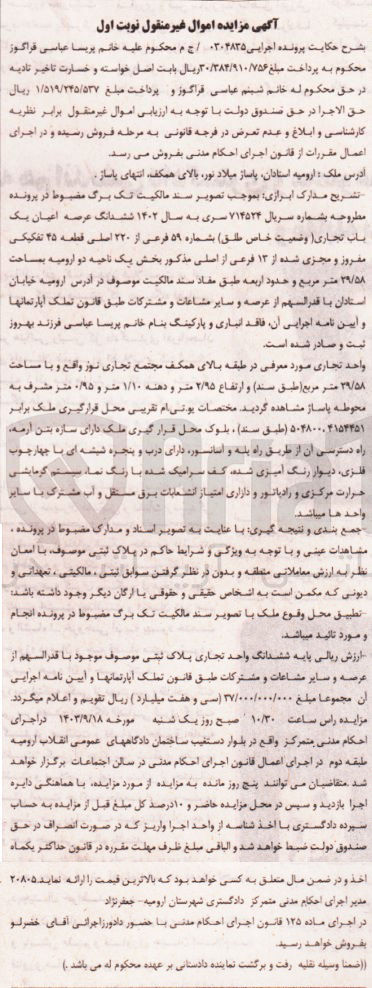 آگهی مزایده اموال غیرمنقول نوبت اول
بشرح حکایت پرونده اجرایی ۰۳۰۴۸۳۵ / ج م محکوم علیه خانم پریسا عباسی قراگوز
محکوم به پرداخت مبلغ ۳۰/۳۸۴/۹۱۰/۷۵۶ریال بابت اصل خواسته و خسارت تاخیر تادیه
در حق محکوم له خانم شبنم عباسی قراگوز و پرداخت مبلغ ۱/۵۱۹/۲۴۵/۵۳۷ ریال
حق الاجرا در حق صندوق دولت با توجه به ارزیابی اموال غیرمنقول برابر نظریه
کارشناسی و ابلاغ و عدم تعرض در فرجه قانونی به مرحله فروش رسیده و در اجرای
اعمال مقررات از قانون اجرای احکام مدنی بفروش می رسد.
آدرس ملک : ارومیه استادان، پاساژ میلاد نور، بالای همکف، انتهای پاساژ .
-تشریح مدارک ابرازی: بموجب تصویر سند مالکیت تک برگ مضبوط در پرونده
مطروحه بشماره سریال ۷۱۴۵۲۴ سری به سال ۱۴۰۲ ششدانگ عرصه اعیان یک
باب تجاری( وضعیت خاص طلق) بشماره ۵۹ فرعی از ۲۲۰ اصلی قطعه ۴۵ تفکیکی
مفروز و مجزی شده از ۱۳ فرعی از اصلی مذکور بخش یک ناحیه دو ارومیه بمساحت
۲۹/۵۸ متر مربع و حدود اربعه طبق مفاد سند مالکیت موصوف در آدرس ارومیه خیابان
استادان با قدرالسهم از عرصه و سایر مشاعات و مشترکات طبق قانون تملک آپارتمانها
و آیین نامه اجرایی آن، فاقد انباری و پارکینگ بنام خانم پریسا عباسی فرزند بهروز
ثبت و صادر شده است.
واحد تجاری مورد معرفی در طبقه بالای همکف مجتمع تجاری نوز واقع و با مساحت
۲۹/۵۸ متر مربع(طبق سند) و ارتفاع ۲/۹۵ متر و دهنه ۱/۱۰ متر و ۰/۹۵ متر مشرف به
محوطه پاساژ مشاهده گردید. مختصات یو.تی.ام تقریبی محل قرارگیری ملک برابر
۵۰۴۸۰۰,۴۱۵۴۴۵۱ (طبق سند) ، بلوک محل قرار گیری ملک دارای سازه بتن آرمه،
راه دسترسی آن از طریق راه پله و آسانسور، دارای درب و پنجره شیشه ای با چهارچوب
فلزی، دیوار رنگ آمیزی شده، کف سرامیک شده با رنگ نما، سیستم گرمایشی
حرارت مرکزی و رادیاتور و داراری امتیاز انشعابات برق مستقل و آب مشترک با سایر
واحد ها میباشد.
-جمع بندی و نتیجه گیری: با عنایت به تصویر اسناد و مدارک مضبوط در پرونده ،
مشاهدات عینی و با توجه به ویژگی و شرایط حاکم در پلاک ثبتی موصوف، با امعان
نظر به ارزش معاملاتی منطقه و بدون در نظر گرفتن سوابق ثبتی ، مالکیتی ، تعهداتی و
دیونی که مکمن است به اشخاص حقیقی و حقوقی یا ارگان دیگر وجود داشته باشد:
-تطبیق محل وقوع ملک با تصویر سند مالکیت تک برگ مضبوط در پرونده انجام
و مورد تائید میباشد.
-ارزش ریالی پایه ششدانگ واحد تجاری پلاک ثبتی موصوف موجود با قدرالسهم از
عرصه و سایر مشاعات و مشترکات طبق قانون تملک آپارتمانها و آیین نامه اجرایی
آن مجموعا مبلغ ۳۷/۰۰۰/۰۰۰/۰۰۰ (سی و هفت میلیارد ) ریال تقویم و اعلام میگردد.
مزایده راس ساعت ۱۰/۳۰ صبح روز یک شنبه مورخه ۱۴۰۳/۹/۱۸ دراجرای
احکام مدنی متمرکز واقع در بلوار دستغیب ساختمان دادگاههای عمومی انقلاب ارومیه
طبقه دوم در اجرای اعمال قانون اجرای احکام مدنی در سالن اجتماعات برگزار خواهد
شد .متقاضیان می توانند پنج روز مانده به مزایده از مورد مزایده، با هماهنگی دایره
اجرا بازدید و سپس در محل مزایده حاضر و ۱۰درصد کل مبلغ قبل از مزایده به حساب
سپرده دادگستری با اخذ شناسه از واحد اجرا واریز که در صورت انصراف در حق
صندوق دولت ضبط خواهد شد و الباقی مبلغ ظرف مهلت مقرره در قانون حداکثر یکماه
اخذ و در ضمن مال متعلق به کسی خواهد بود که بالاترین قیمت را ارائه نماید.۲۰۸۰۵
مدیر اجرای احکام مدنی متمرکز دادگستری شهرستان ارومیه- جعفرنژاد
در اجرای ماده ۱۲۵ قانون اجرای احکام مدنی با حضور دادورزاجرائی آقای خضرلو
بفروش خواهد رسید.
((ضمنا وسیله نقلیه رفت و برگشت نماینده دادستانی بر عهده محکوم له می باشد .)